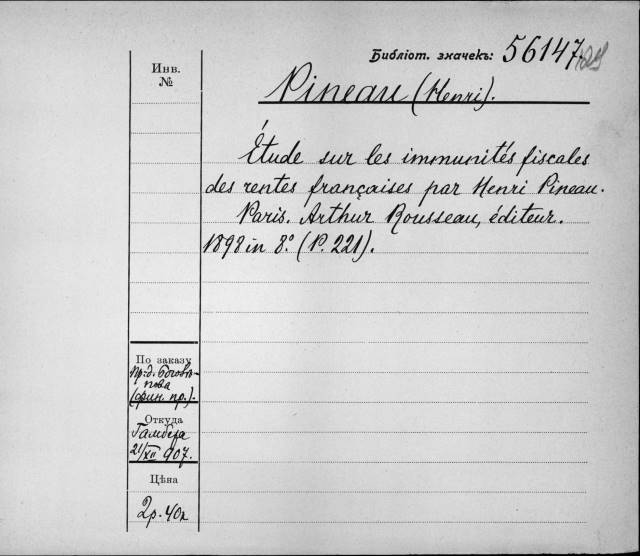 Библіот. значекъ: 56147
Инв.
№
Pineau (Henri).
Étude sur les immunités fiscales
des rentes françaises par Henri Pineau.
Paris. Arthur Rousseau, éditeur.
1898 in 8.° (P. 221).
По заказу
пр.-д. Боголѣ-
пова
(фин. пр.).
Откуда
Гамбера
21/XII 907.
Цѣна
2р. 40к